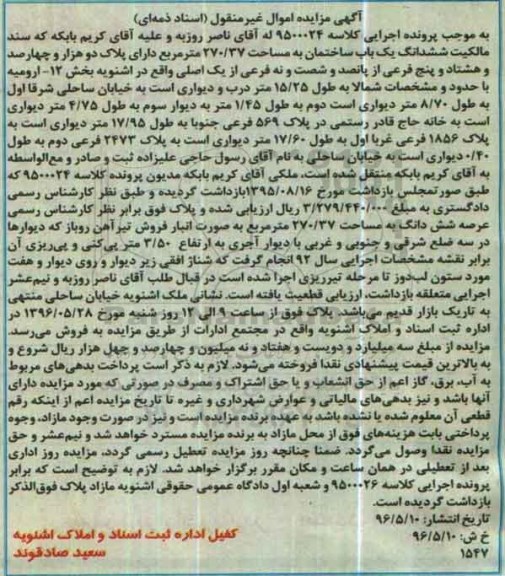 آگهی مزایده اموال غیرمنقول (اسناد ذمه‌ای)
به موجب پرونده اجرایی کلاسه ۹۵۰۰۰۲۴ له آقای ناصر روزبه و علیه آقای کریم بابکه که سند
مالکیت ششدانگ یک باب ساختمان به مساحت ۲۷۰/۳۷ مترمربع دارای پلاک دو هزار و چهارصد
و هشتاد و پنج فرعی از پانصد و شصت و نه فرعی از یک اصلی واقع در اشنویه بخش ۱۲- ارومیه
با حدود و مشخصات شمالا به طول ۱۵/۲۵ متر درب و دیواری است به خیابان ساحلی شرقا اول
به طول ۸/۷۰ متر دیواری است دوم به طول ۱/۴۵ متر به دیوار سوم به طول ۴/۷۵ متر دیواری
است به خانه حاج قادر رستمی در پلاک ۵۶۹ فرعی جنوبا به طول ۱۷/۹۵ متر دیواری است به
پلاک ۱۸۵۶ فرعی غربا اول به طول ۱۷/۶۰ متر دیواری است به پلاک ۲۴۷۳ فرعی دوم به طول
۰/۴۰ دیواری است به خیابان ساحلی به نام آقای رسول حاجی علیزاده ثبت و صادر و مع‌الواسطه
به آقای کریم بابکه منتقل شده است، ملکی آقای کریم بابکه مدیون پرونده کلاسه ۹۵۰۰۰۲۴ که
طبق صورتمجلس بازداشت مورخ ۱۳۹۵/۰۸/۱۶ بازداشت گردیده و طبق نظر کارشناس رسمی
دادگستری به مبلغ ۳/۲۷۹/۴۴۰/۰۰۰ ریال ارزیابی شده و پلاک فوق برابر نظر کارشناس رسمی
عرصه شش دانگ به مساحت ۲۷۰/۳۷ مترمربع به صورت انبار فروش تیرآهن روباز که دیوارها
در سه ضلع شرقی و جنوبی و غربی با دیوار آجری به ارتفاع ۳/۵۰ متر پی‌کنی و پی‌ریزی آن
برابر نقشه مشخصات اجرایی سال ۹۲ انجام گرفت که شناژ افقی زیر دیوار و روی دیوار و هفت
مورد ستون لب‌دوز تا مرحله تیرریزی اجرا شده است در قبال طلب آقای ناصر روزبه و نیم‌عشر
اجرایی متعلقه بازداشت، ارزیابی قطعیت یافته است. نشانی ملک اشنویه خیابان ساحلی منتهی
به تاریک بازار قدیم می‌باشد. پلاک فوق از ساعت ۹ الی ۱۲ روز شنبه مورخ ۱۳۹۶/۰۵/۲۸ در
اداره ثبت اسناد و املاک اشنویه واقع در مجتمع ادارات از طریق مزایده به فروش می‌رسد.
مزایده از مبلغ سه میلیارد و دویست و هفتاد و نه میلیون و چهارصد و چهل هزار ریال شروع و
به بالاترین قیمت پیشنهادی نقدا فروخته می‌شود. لازم به ذکر است پرداخت بدهی‌های مربوط
به آب، برق، گاز اعم از حق انشعاب و یا حق اشتراک و مصرف در صورتی که مورد مزایده دارای
آنها باشد و نیز بدهی‌های مالیاتی و عوارض شهرداری و غیره تا تاریخ مزایده اعم از اینکه رقم
قطعی آن معلوم شده یا نشده باشد به عهده برنده مزایده است و نیز در صورت وجود مازاد، وجوه
پرداختی بابت هزینه‌های فوق از محل مازاد به برنده مزایده مسترد خواهد شد و نیم‌عشر و حق
مزایده نقدا وصول می‌گردد. ضمنا چنانچه روز مزایده تعطیل رسمی گردد، مزایده روز اداری
بعد از تعطیلی در همان ساعت و مکان مقرر برگزار خواهد شد. لازم به توضیح است که برابر
پرونده اجرایی کلاسه ۹۵۰۰۰۲۶ و شعبه اول دادگاه عمومی حقوقی اشنویه مازاد پلاک فوق‌الذکر
بازداشت گردیده است.
تاریخ انتشار: ۹۶/۵/۱۰
خ ش: ۹۶/۵/۱۰
کفیل اداره ثبت اسناد و املاک اشنویه
۱۵۴۷
سعید صادقوند